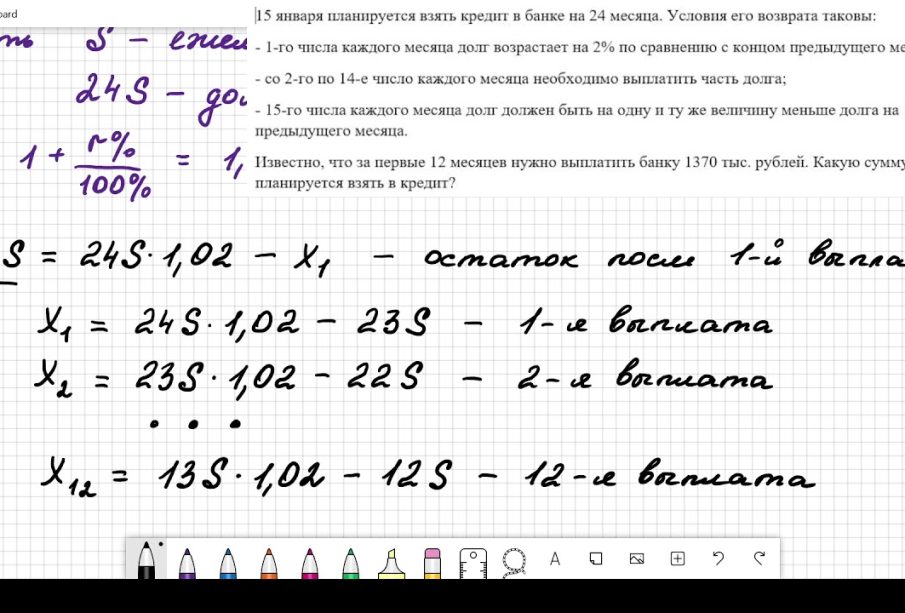 ard
15 января планируется взять кредит в банке на 24 месяца. Условия его возврата таковы:
- 1-го числа каждого месяца долг возрастает на 2% по сравнению с концом предыдущего ме
- со 2-го по 14-е число каждого месяца необходимо выплатить часть долга;
- 15-го числа каждого месяца долг должен быть на одну и ту же величину меньше долга на
предыдущего месяца.
Известно, что за первые 12 месяцев нужно выплатить банку 1370 тыс. рублей. Какую сумму
планируется взять в кредит?
ть S – ежем
24S – дол
1 + r%/100% = 1,
S = 24S·1,02 – x₁ – остаток после 1-й выпла
x₁ = 24S·1,02 – 23S – 1-я выплата
x₂ = 23S·1,02 – 22S – 2-я выплата
• • •
x₁₂ = 13S·1,02 – 12S – 12-я выплата
A